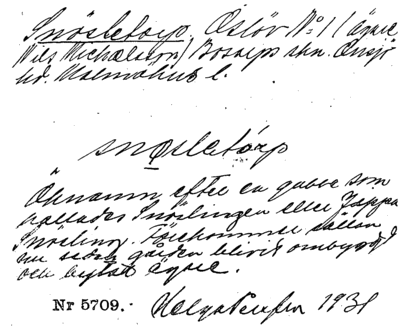 Snösletorp. Östöv No 1 (ägare
Nils Michaelsson) Bosarps skn. Onsjö
hd. Malmöhus l.
snọsletórp
Öknamn efter en gubbe som
kallades Snöslingen eller Jeppa
Snösling. Förekommer sällan
nu sedan gården blivit ombyggd
och bytat ägare.
Nr 5709. Helga 1931